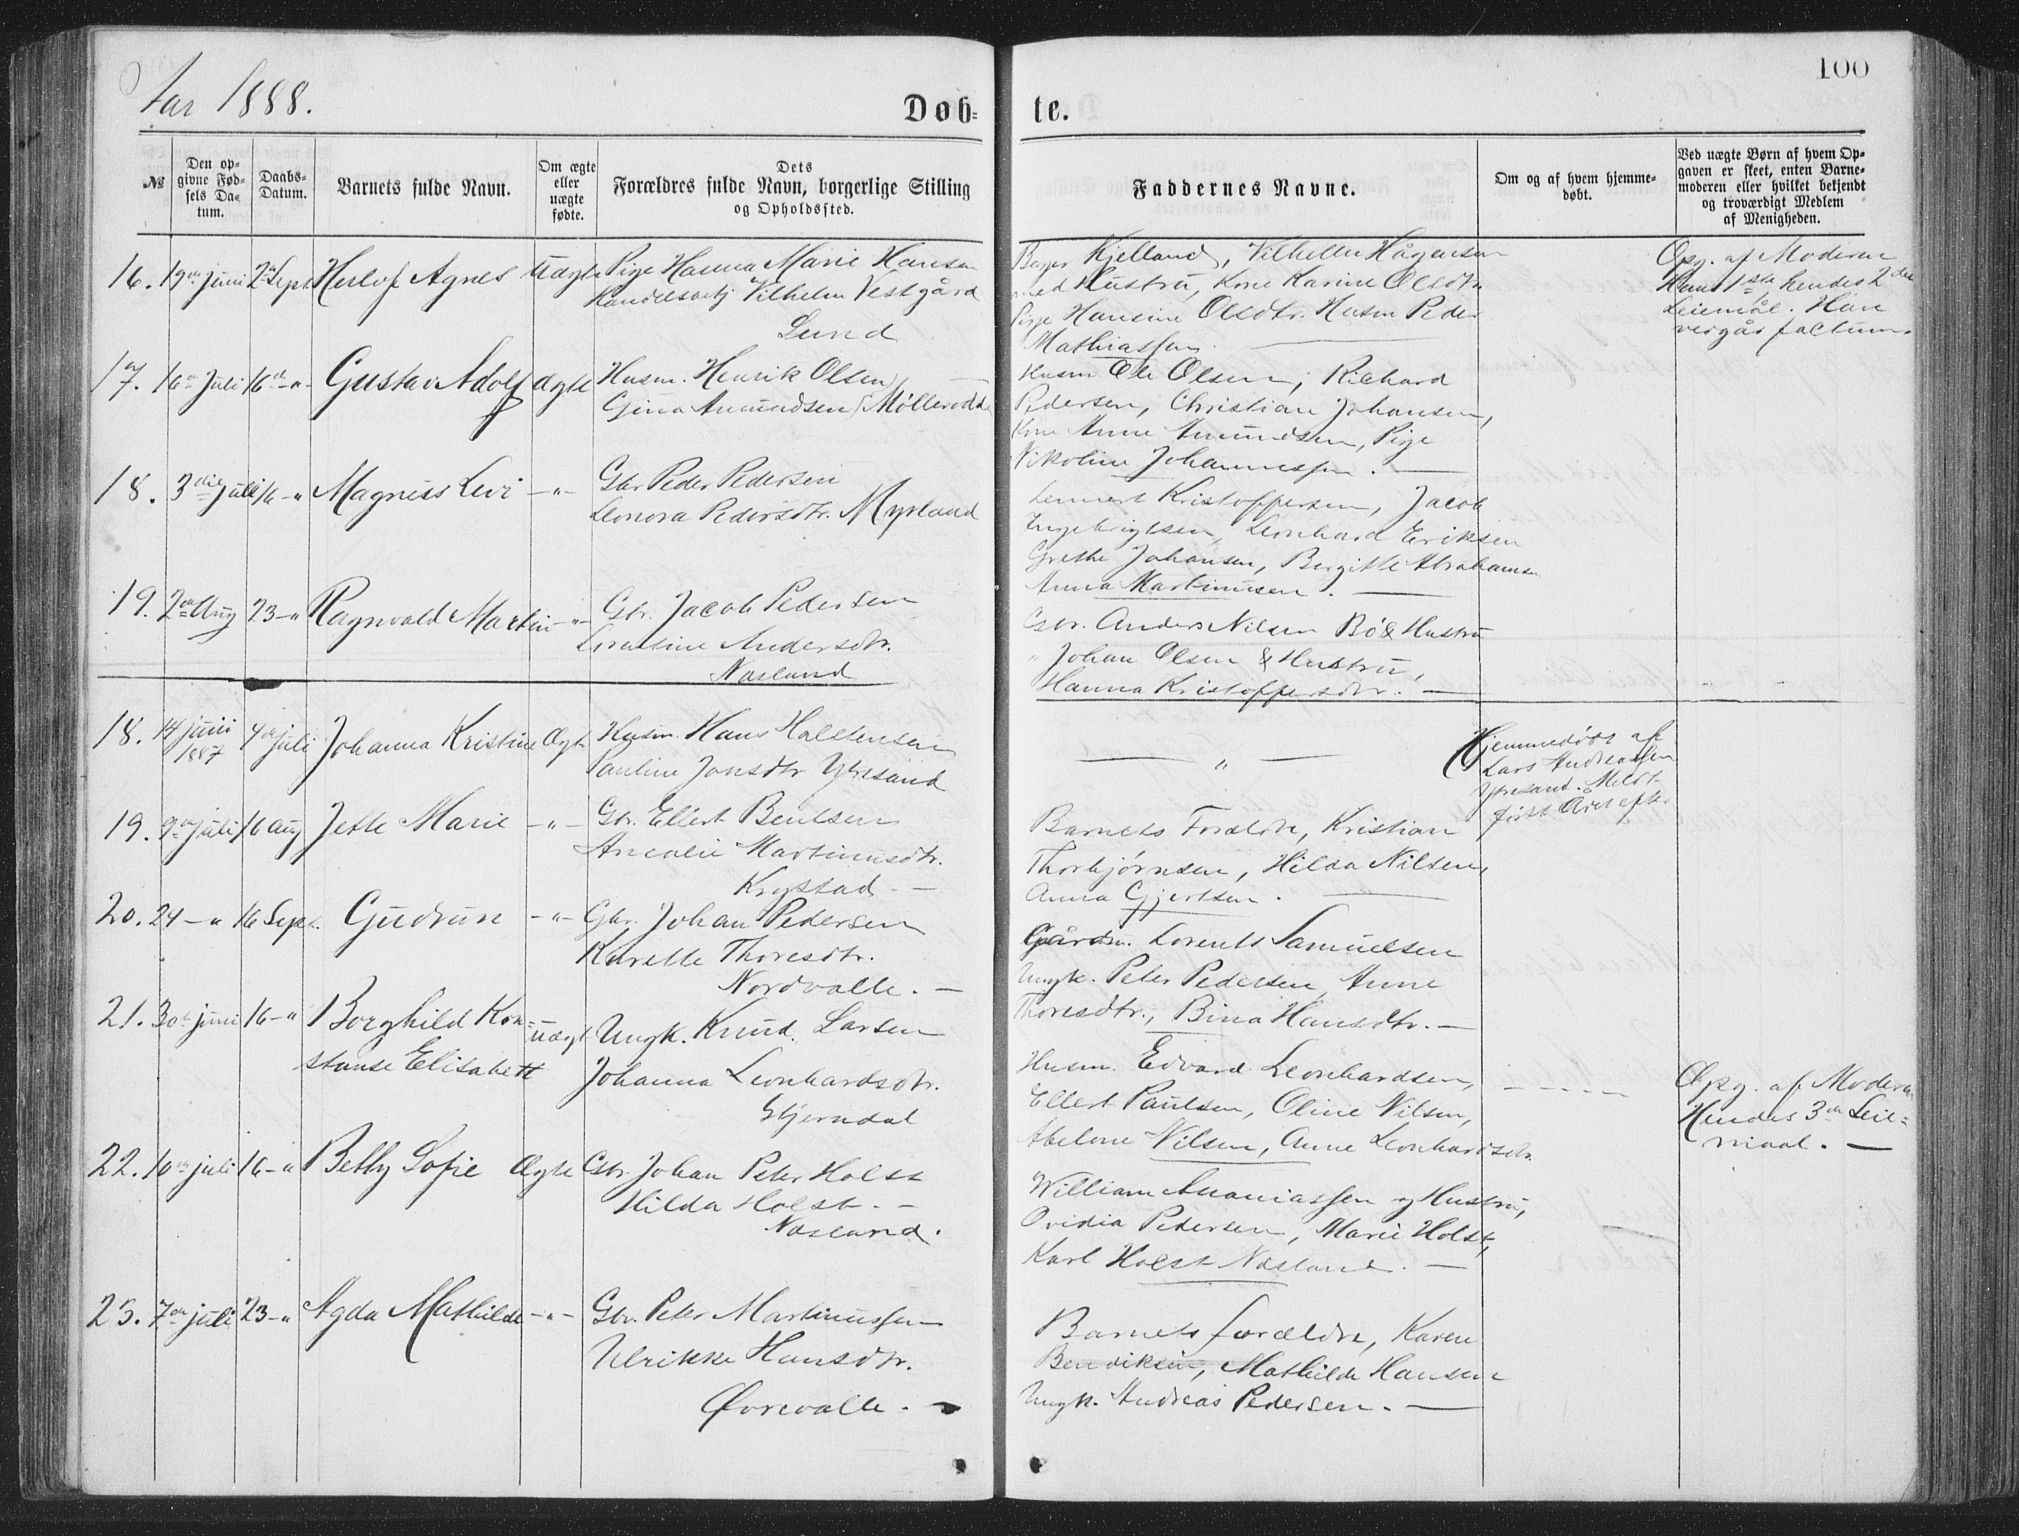 Aar 1888.
100
Døb-
te.
№
Den op-
givne Fød-
sels Da-
tum.
Daabs-
Datum.
Barnets fulde Navn.
Om ægte
eller
uægte
fødte.
Dets
Forældres fulde Navn, borgerlige Stilling
og Opholdssted.
Faddernes Navne.
Om og af hvem hjemme-
døbt.
Ved uægte Børn af hvem Op-
gaven er skeet, enten Barne-
moderen eller hvilket bekjendt
og troværdigt Medlem
af Menigheden.
16. 19de juni 2den Sept Herlof Agnes Uægte Pige Hanna Marie Hansen
Handelsbetj Vilhelm Vestgård
Lund
Kjelland, Vilhelm Hågensen
med Hustru, Kone Karine Olsdtr
Pige Hansine Olsdtr. Husm Peder
Mathiassen.
Opg. af Moderen
Hans 1ste, hendes 2den
Leiemål. Han
vergår factum.
17. 16de Juli 16de -"- Gustav Adolf Ægte Husm. Henrik Olsen
Gina Amundsen Møllerodde
Husm Ole Olsen, Richard
Pedersen, Christian Johansen,
Kone Anne Amundsen, Pige
Nikoline Johannessen.
18. 3die juli 16 -"- Magnus Levi -"- Gbr Peder Pedersen
Leonora Pedersdtr. Myrland
Lennert Kristoffersen, Jacob
Engebrigtsen, Leonhard Eriksen
Grethe Johansen, Birgitte Abrahams
Anna Martinusen.
19. 2den Aug 23 -"- Ragnvald Martin -"- Gbr. Jacob Pedersen
Andersdtr.
Næsland
Gbr. Anders Nilsen Bö & Hustru
" Johan Olsen & Hustru,
Hanna Kristoffersdtr.
18. 14 juni 1887 4de juli Johanna Kristine Ægte Husm. Hans Halstensen
Pauline Jonsdtr Ytresand
"
Hjemmedöbt af
Lars Andreassen
Ytresand. Meldt
först Året efter
19. 9de juli 16 aug Jette Marie -"- Gbr. Ellert Bentsen
Ancalie Martinusdtr.
Krystad
Barnets Foreldre, Kristian
Thorbjørnsen, Hilda Nilsen,
Anna Gjertsen.
20. 24 -"- 16 Sept. Gudrun -"- Gbr. Johan Pedersen
Karelle Thoresdtr.
Nordvalle.
Gårdm. Lorents Samuelsen
Ungk. Peter Pedersen, Anne
Thoresdtr., Bina Hansdtr.
21. 30te juni 16 -"- Borghild Kon-
stanse Elisabett uægt Ungk. Knud Larsen
Johanna Leonhardsdtr.
Stjerndal
Husm. Edvard Leonhardsen,
Ellert Paulsen, Oline Nilsen,
Abelone Nilsen, Anne Leonhardsdtr.
Opg. af Moderen
Hendes 3die Leie-
maal.
22. 10de juli 16 -"- Betty Sofie Ægte Gbr. Johan Peter Holst
Hilda Holst.
Næsland.
William Ananiassen og Hustru,
Ovidia Pedersen, Marie Holst,
Karl Holst Næsland.
23. 7de juli 23 -"- Agda Mathilde -"- Gbr. Peter Martinussen
Ulrikke Hansdtr.
Øvrevalle.
Barnets forældre, Karen
Bendiksen, Mathilde Hansen
Ungk. Andreas Pedersen.